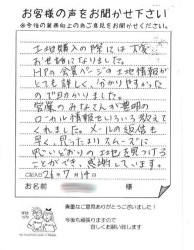 お客様の声をお聞かせ下さい
※今後の業務向上の為ご意見をお聞かせください。
土地購入の際には大変
お世話になりました。
HPの会員ページの土地情報が
とても詳しく、分かりやすかった
ので助かりました。
営業のみなさんも豊明の
ローカル情報もいろいろ教えて
くれました。メールの返信も
早く、思ったよりスムーズに
土地を見つける
ことができ、感謝しています。
26年7月14日
お名前 様
貴重なご意見ありがとうございました!
今後も頑張りますので
宜しくお願い致します